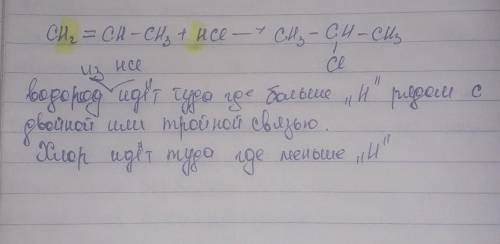 CH₂ = CH – CH₃ + HCl → CH₃ – CH – CH₃
Cl
из HCl
водород идёт туда где больше „H" рядом с
двойной или тройной связью.
Хлор идёт туда где меньше „H"